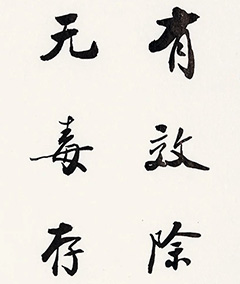 有效除
无毒存